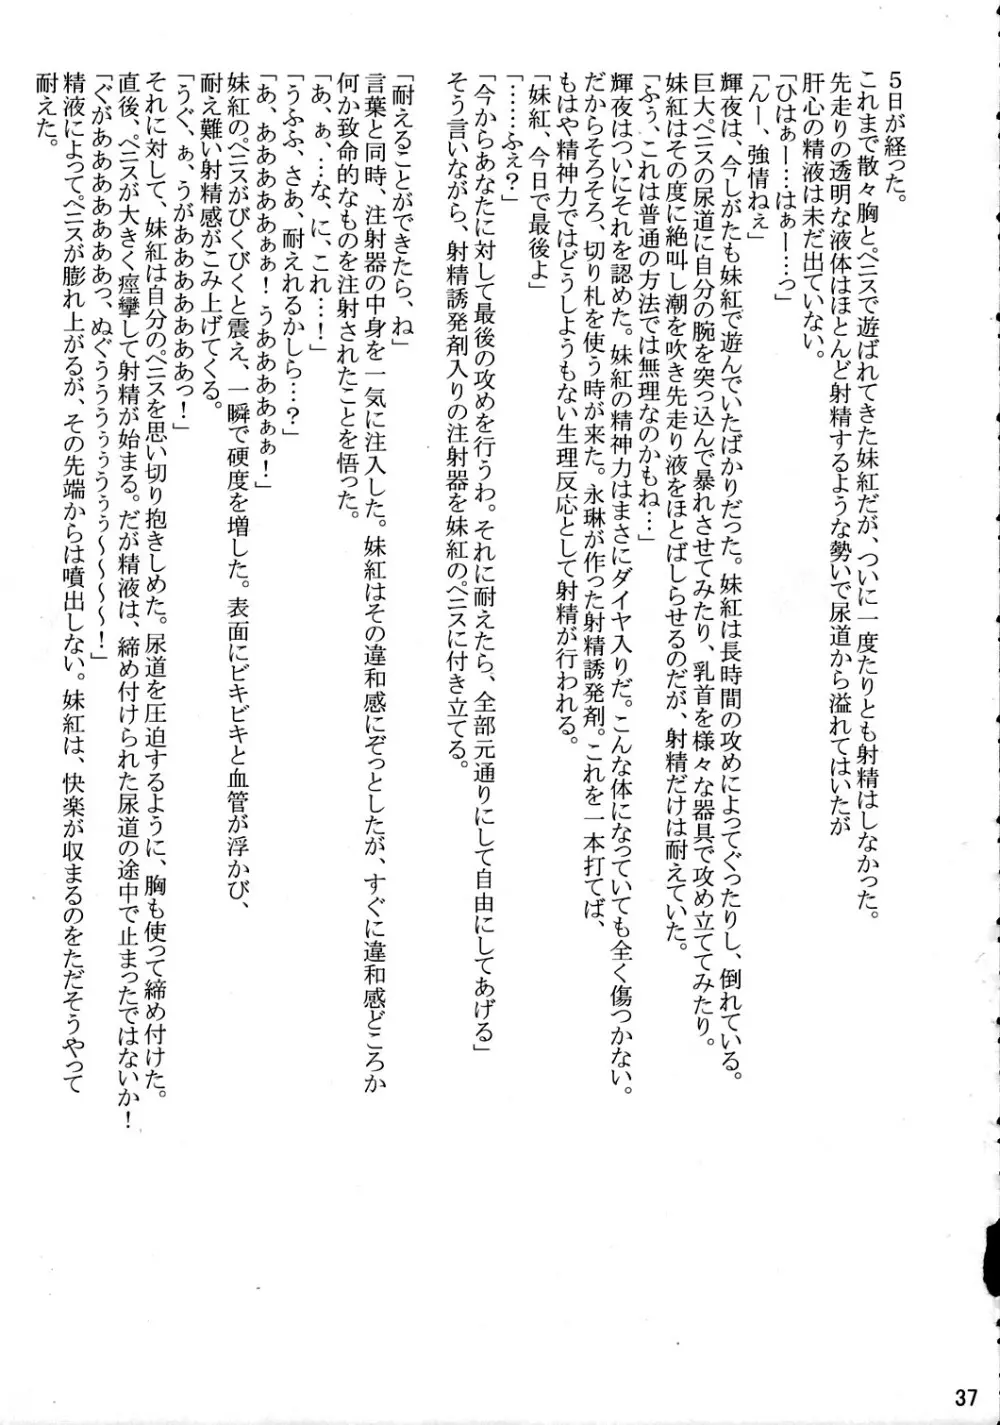 ５日が経った。
これまで散々胸とペニスで遊ばれてきた妹紅だが、ついに一度たりとも射精はしなかった。
先走りの透明な液体はほとんど射精するような勢いで尿道から溢れてはいたが
肝心の精液は未だ出ていない。
「ひはぁー…はぁー…っ」
「んー、強情ねぇ」
輝夜は、今しがたも妹紅で遊んでいたばかりだった。妹紅は長時間の攻めによってぐったりし、倒れている。
巨大ペニスの尿道に自分の腕を突っ込んで暴れさせてみたり、乳首を様々な器具で攻め立ててみたり。
妹紅はその度に絶叫し潮を吹き先走り液をほとばしらせるのだが、射精だけは耐えていた。
「ふぅ、これは普通の方法では無理なのかもね…」
輝夜はついにそれを認めた。妹紅の精神力はまさにダイヤ入りだ。こんな体になっていても全く傷つかない。
だからそろそろ、切り札を使う時が来た。永琳が作った射精誘発剤。これを一本打てば、
もはや精神力ではどうしようもない生理反応として射精が行われる。
「妹紅、今日で最後よ」
「……ふぇ？」
「今からあなたに対して最後の攻めを行うわ。それに耐えたら、全部元通りにして自由にしてあげる」
そう言いながら、射精誘発剤入りの注射器を妹紅のペニスに付き立てる。
「耐えることができたら、ね」
言葉と同時、注射器の中身を一気に注入した。妹紅はその違和感にぞっとしたが、すぐに違和感どころか
何か致命的なものを注射されたことを悟った。
「あ、ぁ、…な、に、これ…！」
「うふふ、さあ、耐えれるかしら…？」
「あ、あああああぁぁ！うああああぁぁ！」
妹紅のペニスがびくびくと震え、一瞬で硬度を増した。表面にビキビキと血管が浮かび、
耐え難い射精感がこみ上げてくる。
「うぐ、ぁ、うがああああああっ！」
それに対して、妹紅は自分のペニスを思い切り抱きしめた。尿道を圧迫するように、胸も使って締め付けた。
直後、ペニスが大きく痙攣して射精が始まる。だが精液は、締め付けられた尿道の途中で止まったではないか！
「ぐがああああああああっ、ぬぐうううぅぅうぅぅ～～～～！」
精液によってペニスが膨れ上がるが、その先端からは噴出しない。妹紅は、快楽が収まるのをただそうやって
耐えた。
37